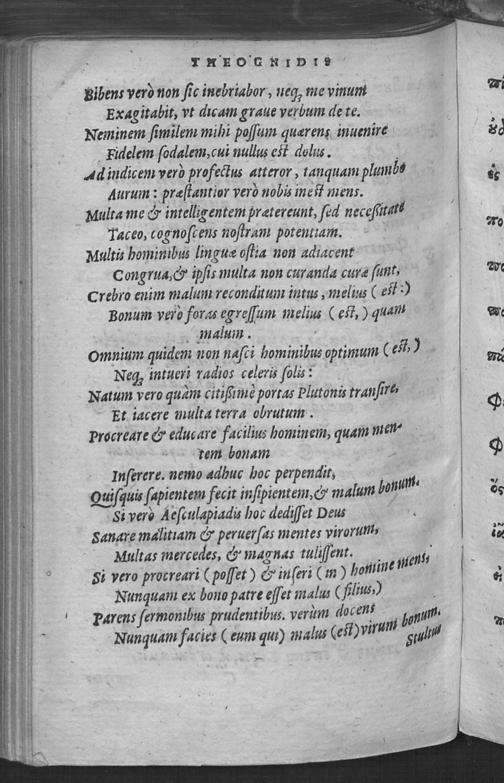 THEOGNIDIS
Bibens verò non sic inebriabor, neq; me vinum
Exagitabit, vt dicam graue verbum de te.
Neminem similem mihi possum quærens inuenire
Fidelem sodalem, cui nullus est dolus.
Ad indicem verò profectus atteror, tanquam plumbo
Aurum: præstantior verò nobis inest mens.
Multa me & intelligentem prætereunt, sed necessitate
Taceo, cognoscens nostram potentiam.
Multis hominibus linguæ ostia non adiacent
Congrua, & ipsis multa non curanda curæ sunt,
Crebro enim malum reconditum intus, melius (est:)
Bonum verò foras egressum melius (est,) quam
malum.
Omnium quidem non nasci hominibus optimum (est,)
Neq; intueri radios celeris solis:
Natum vero quàm citissimè portas Plutonis transire,
Et iacere multa terra obrutum.
Procreare & educare facilius hominem, quam men-
tem bonam
Inserere. nemo adhuc hoc perpendit,
Quisquis sapientem fecit insipientem, & malum bonum.
Si verò Aesculapiadis hoc dedisset Deus
Sanare malitiam & peruersas mentes virorum,
Multas mercedes, & magnas tulissent.
Si vero procreari (posset) & inseri (in) homine mens,
Nunquam ex bono patre esset malus (filius,)
Parens sermonibus prudentibus. verùm docens
Nunquam facies (eum qui) malus (est) virum bonum.
Stultus
πι
ὀυ
ἐς
πο
πο
πο
πώ
Φ
Φ
ὅς
πι